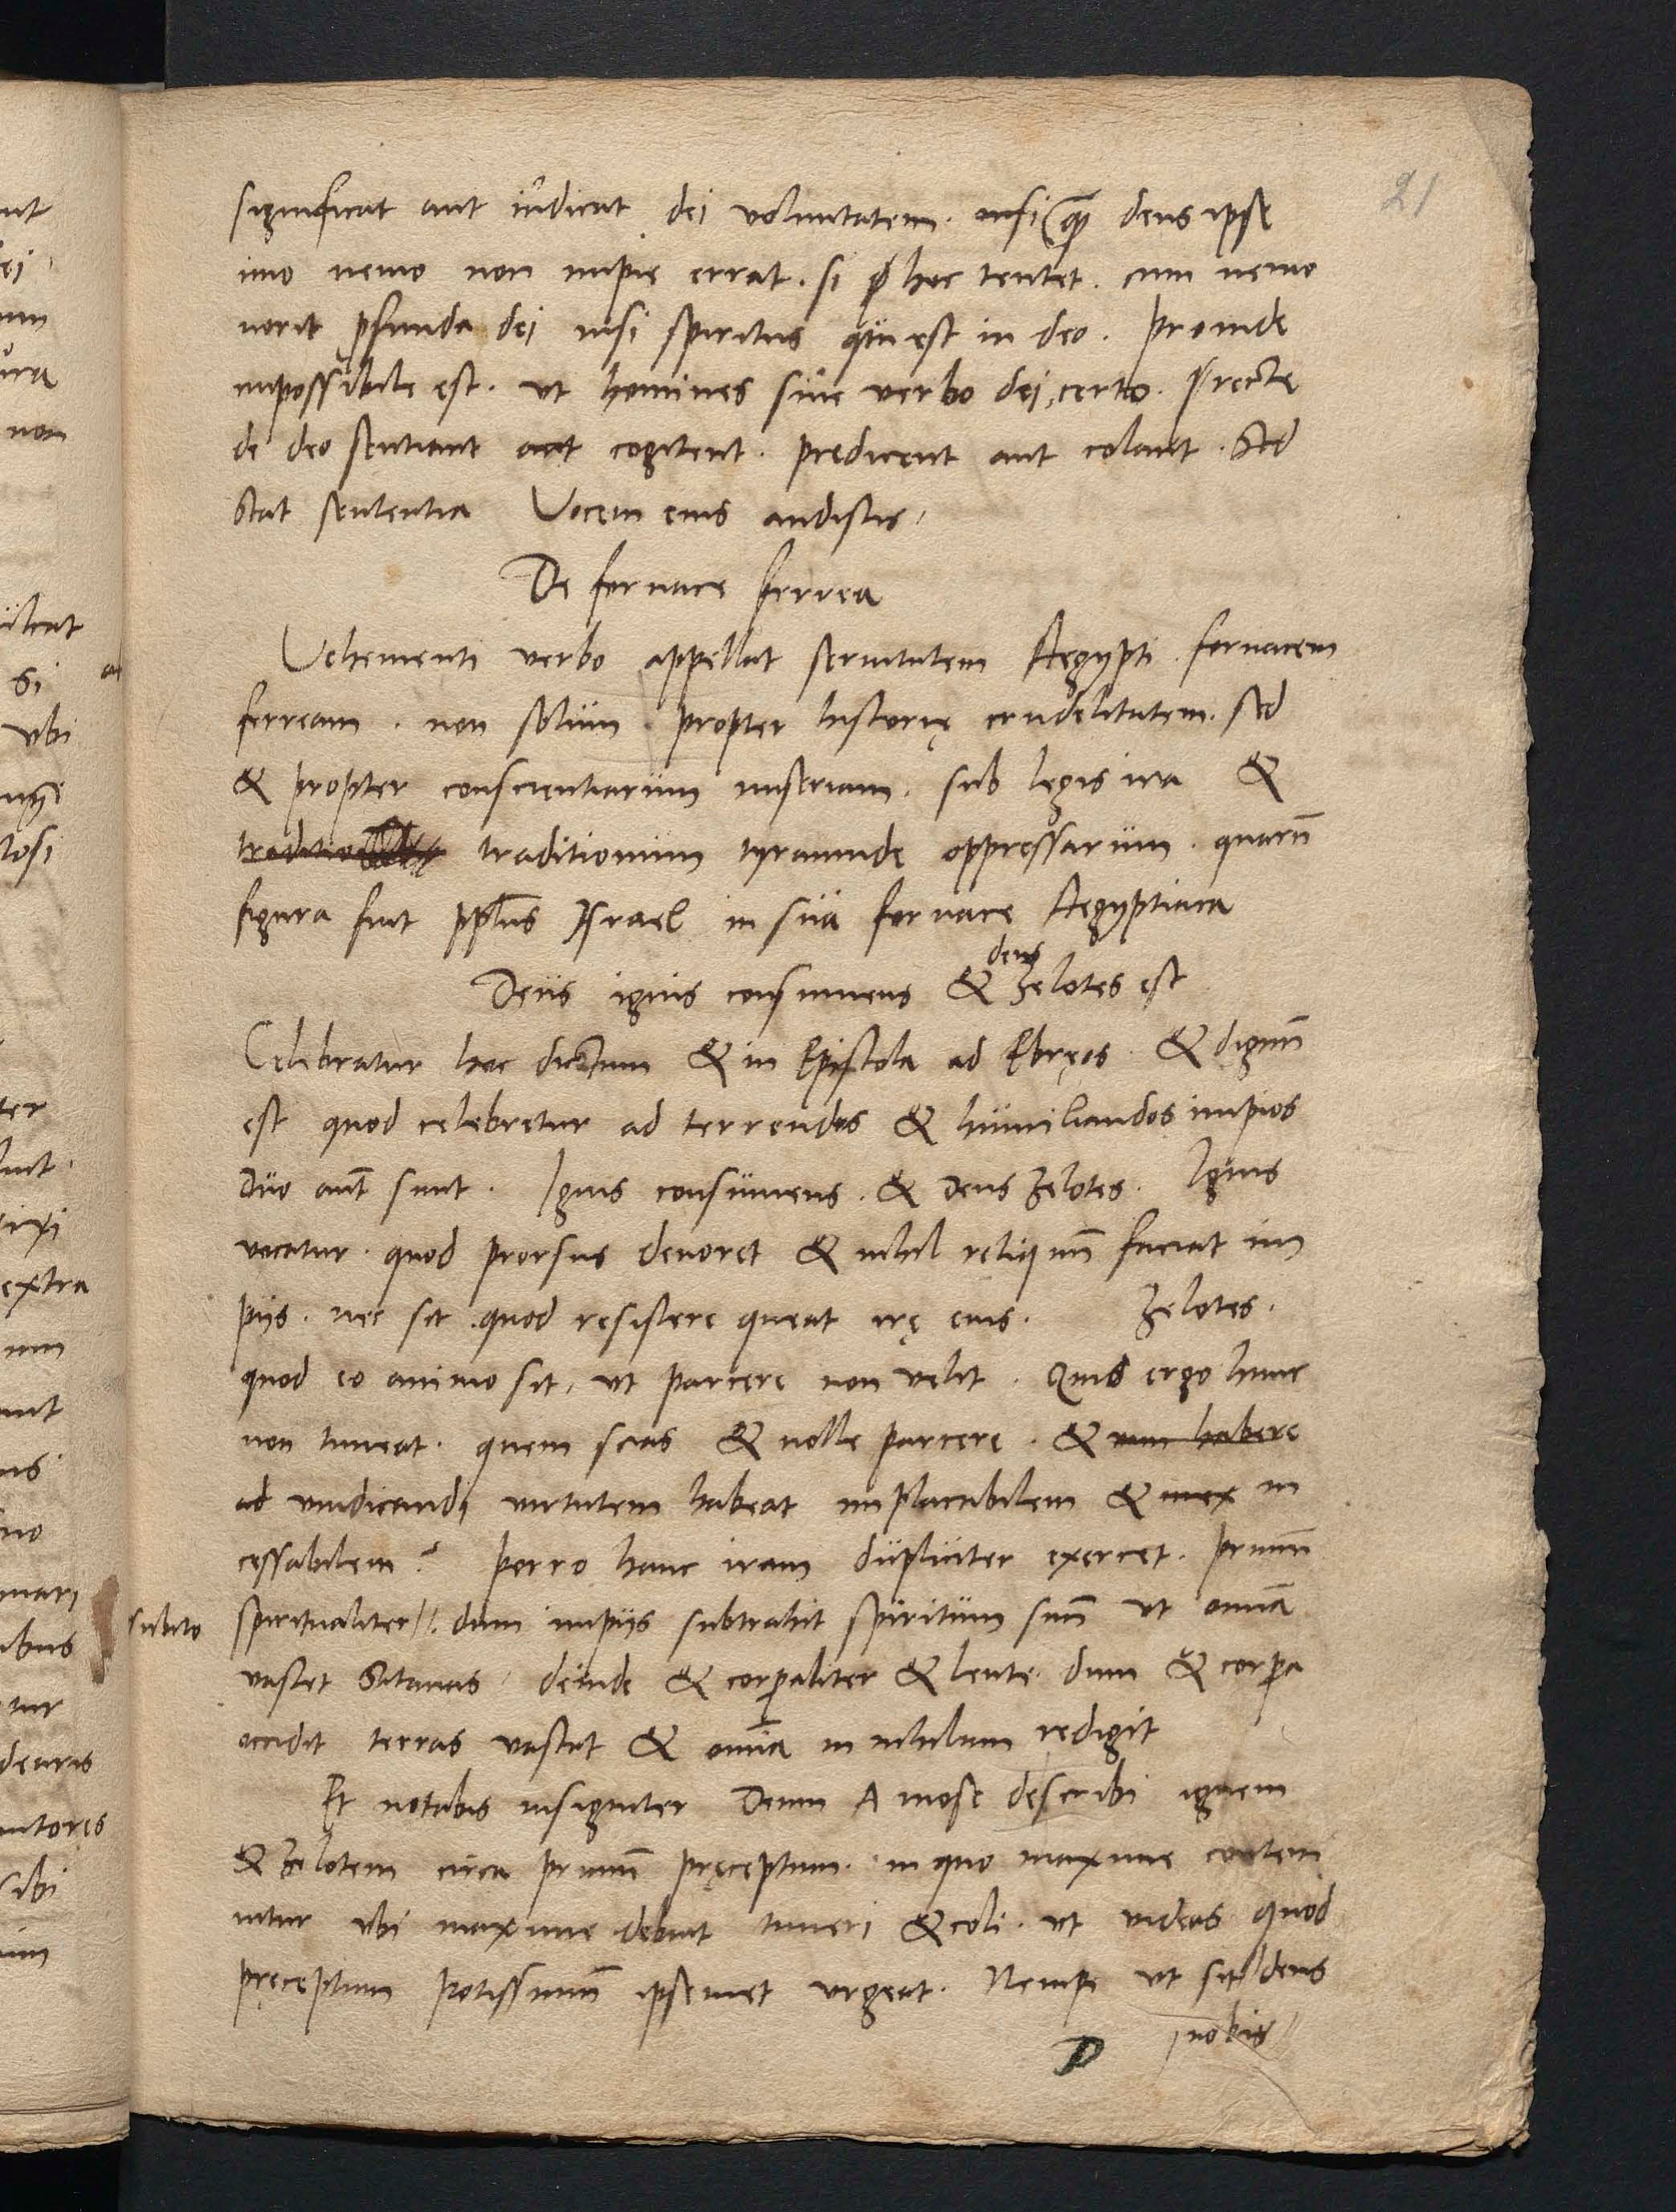 21
significat aut iudicat dei voluntatem. nisi (qͣꝫ deus ipse
imo nemo non impie errat. si ꝓ hoc tentet. cum nemo
norit ꝓfunda dei nisi spiritus qui est in deo. Proinde
impossibile est. ut homines sine verbo dei, certo. recte
de deo sentiant aut cogitent. predicent aut colant. Sed
stat sententia Vocem eius audistis.
De fornace ferrea
Vehementi verbo appellat seruitutem Aegypti fornacem
ferream. non solum propter historię crudelitatem. sed
& propter conscientiarum miseriam. sub legis ira &
traditionum tyrannide oppressarum. quarū
figura fuit ppl̄us Israel in sua fornace Aegyptiaca
deus
Deus ignis consumens & Zelotes est
Celebratur hoc dictum & in Epistola ad Ebręos. & dignū
est quod celebretur ad terrendos & humiliandos impios
Duo aūt sunt. Ignis consumens. & Deus Zelotes. Ignis
vocatur. quod prorsus deuoret & nihil reliquū faciat im
piis. nec sit quod resistere queat irę eius. Zelotes.
quod eo animo sit, ut parcere non velit. Quis ergo hunc
non timeat. quem scias & nolle parcere. & vim habere
ad vindicandi virtutem habeat implacabilem & inex in
cessabilem? Porro hanc iram dupliciter exercet. primū
subito
spiritualiter. dum impiis subtrahit spiritum suū ut omīa
vastet Satanas. deinde & corꝑaliter & lente. dum & corpa
occidit terras vastat & omīa in nihilum redigit
Et notabis insigniter Deum A mose describi ignem
& Zelotem circa primū pręceptum. in quo maxime contem
nitur ubi maxime debuit timeri & coli. ut videas quod
pręceptum potissimū ipsemet urgeat. Nempe ut sit deus
nobis
D